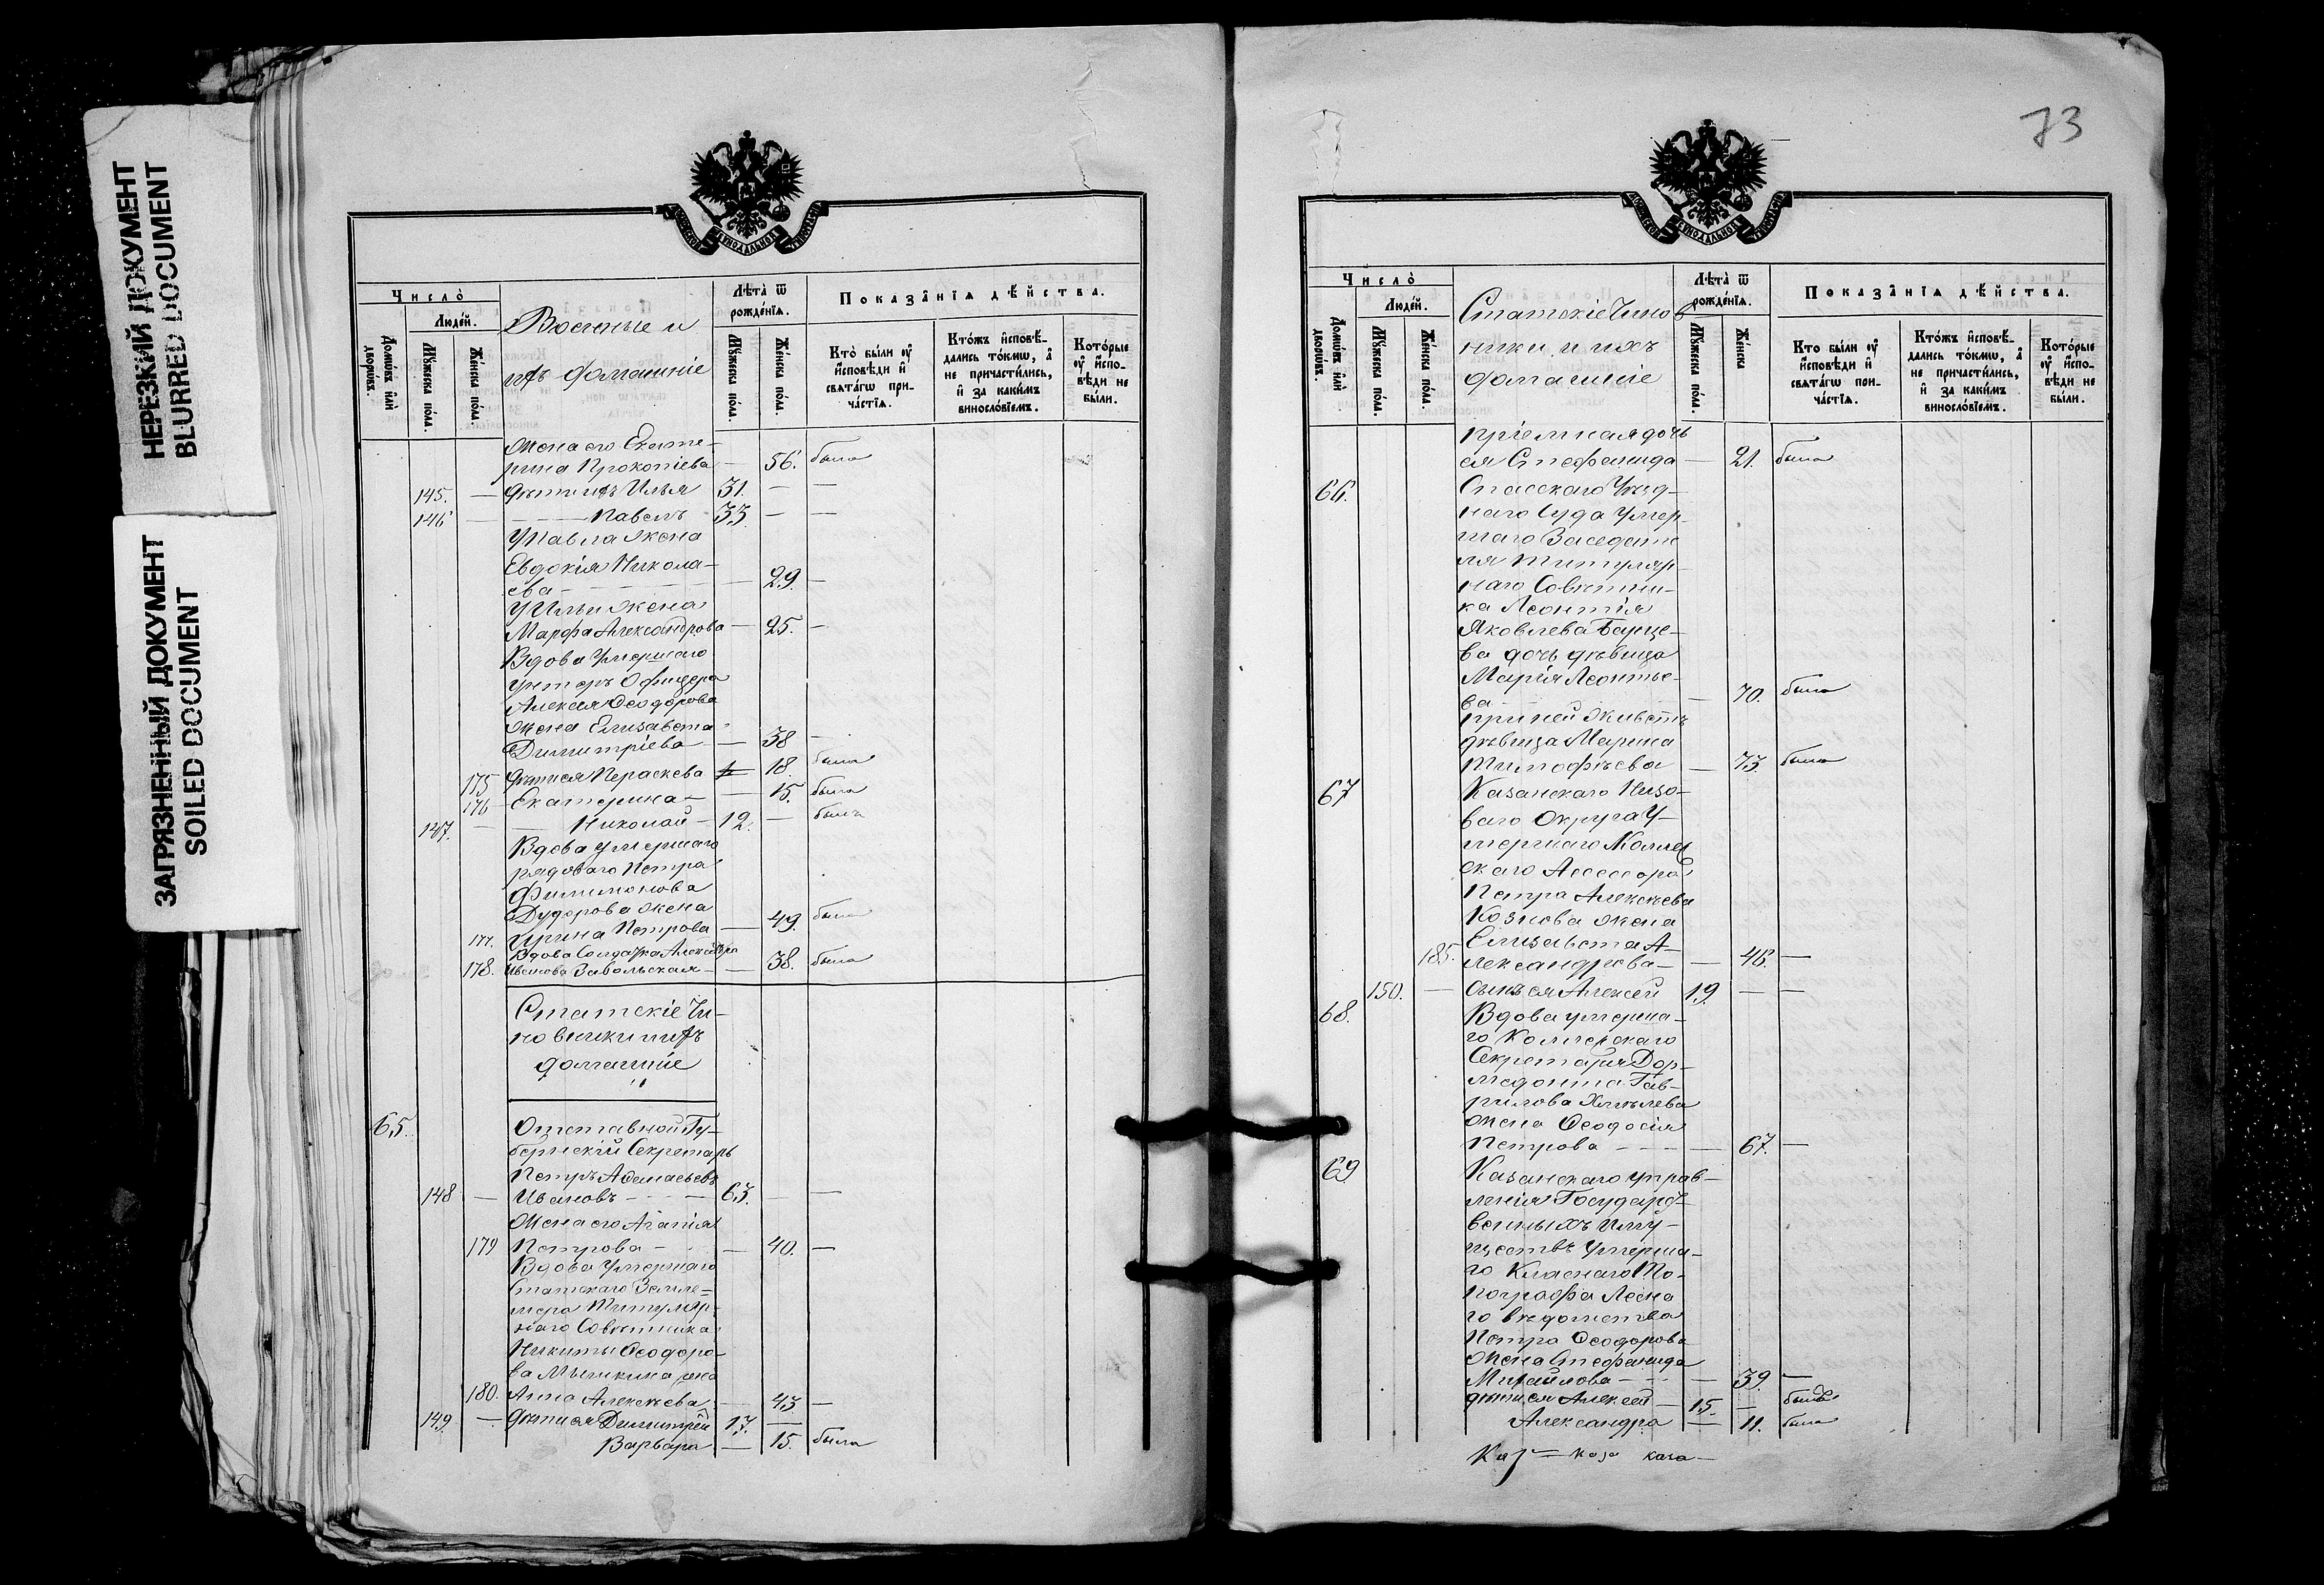 НЕРЕЗКИЙ ДОКУМЕНТ
BLURRED DOCUMENT
ЗАГРЯЗНЕННЫЙ ДОКУМЕНТ
SOILED DOCUMENT
Число̀
Людéй.
Домѡ́въ и҆лѝ дворѡ́въ.
Мꙋ́жеска по́ла.
Же́нска по́ла.
Военные и
ихъ домашніе
Лѣта̀ ѿ рожде́нїѧ.
Мꙋ́жеска по́ла.
Же́нска по́ла.
Показа̑нїѧ дѣ́йства.
Кто̀ бы́ли ᲂу҆
и҆сповѣ́ди и҆
свѧта́гѡ при-
ча́стїѧ.
Кто́жъ и҆сповѣ́-
дались то́кмѡ, а҆
не причасти́лись,
и҆ за каки́мъ
винословїемъ.
Кото́рые
ᲂу҆ и҆спо-
вѣ́ди не
бы́ли.
Жена его Екате-
рина Прокопіева — 56. была
145. — дѣти ихъ Илья 31. — —
146 — — Павелъ 33 — —
У Павла жена
Евдокія Никола-
ева — — 29 —
У Ильи жена
Марфа Александрова — 25. —
Вдова умершаго
унтеръ Офицера
Алексея Ѳеодорова
жена Елисавета
Димитріева — 38 —
175 дѣти ея Параскева 18. была
176 Екатерина — — 15. была
147. — — Николай — 12. — былъ
Вдова умершаго
рядоваго Петра
Филимонова
Дудорова жена
177. Ирина Петрова — 49. была
Вдова Солдатка
178. Ивановa — 38. была
Статскіе Чи-
новники и ихъ
домашніе
65. Отставной Гу-
бернскій Секретарь
Петръ Аѳанасьевъ
148 — Ивановъ — — 63. — —
Жена его Агапія
179 Петрова — — 40. —
Вдова умершаго
Статскаго Земле-
мера Титуляр-
наго Совѣтника
Никиты Ѳеодоро-
ва
180. Анна Алексѣева — 43 —
149 — дѣти ея Димитрій 17. —
Варвара — 15. была
73
Число̀
Людéй.
Домѡ́въ и҆лѝ дворѡ́въ.
Мꙋ́жеска по́ла.
Же́нска по́ла.
Статскіе Чинов
ники и ихъ
домашніе
Лѣта̀ ѿ рожде́нїѧ.
Мꙋ́жеска по́ла.
Же́нска
Показа̑нїѧ дѣ́йства.
Кто бы́ли ᲂу҆
и҆сповѣ́ди и҆
свѧта́гѡ при-
ча́стїѧ.
Кто́жъ и҆сповѣ́-
дались то́кмѡ, а҆
не причасти́лись,
и҆ за каки́мъ
винословїемъ.
Кото́рые
ᲂу҆ и҆спо-
вѣ́ди не
бы́ли.
пріемная дочь
ея Стефанида — 21. была
66. Спасскаго Уѣзд-
наго Суда умер-
шаго Заседате
ля Титуляр-
наго Совѣтни-
ка Леонтія
Яковлева
ва дочь дѣвица
Марія Леонтье-
ва — 70. была
при ней живетъ
дѣвица Марина
Тимофѣева — 73. была
67 Казанскаго Низо-
ваго Округа У-
мершаго Коллеж
скаго Ассесора
Петра Алексѣева
Козлова жена
Елизавета А-
185. лександрова — — 46. —
150. — сынъ ея Алексей 19 — —
68. Вдова умерша-
го Коллежскаго
Секретаря Дор-
медонта Гав-
рилова Хмѣлева
жена Ѳеодосія
Петрова — — — 67. —
69 Казанскаго управ-
ленія Государст-
венныхъ Иму-
ществъ Умерша-
го Класнаго То-
пографа Лесна
го вѣдомства
Петра Ѳеодорова
жена Стефанида
Михайлова — — 39. —
дѣти ея Алексей — 15. — былъ
Александра — 11. была